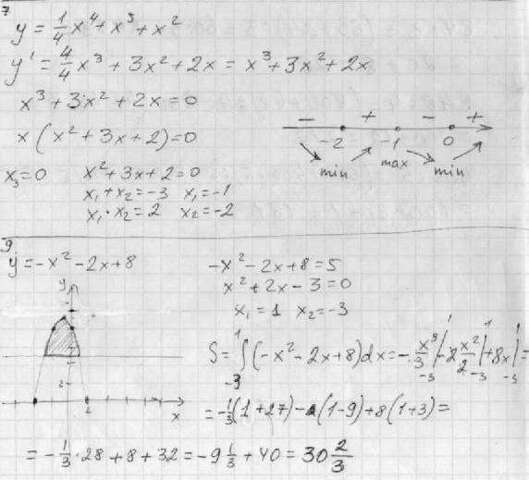 7
y = 1/4 x⁴ + x³ + x²
y' = 4/4 x³ + 3x² + 2x = x³ + 3x² + 2x
x³ + 3x² + 2x = 0
x(x² + 3x + 2) = 0
x₃ = 0 x² + 3x + 2 = 0
x₁ + x₂ = -3 x₁ = -1
x₁ · x₂ = 2 x₂ = -2
- + - +
-2 -1 0
min max min
9
y = -x² - 2x + 8
y
2
x
-x² - 2x + 8 = 5
x² + 2x - 3 = 0
x₁ = 1 x₂ = -3
S = ∫₋₃¹ (-x² - 2x + 8)dx = - x³/3 |₋₃¹ - 2 x²/2 |₋₃¹ + 8x |₋₃¹ =
= -1/3 (1 + 27) - (1 - 9) + 8(1 + 3) =
= - 1/3 · 28 + 8 + 32 = -9 1/3 + 40 = 30 2/3